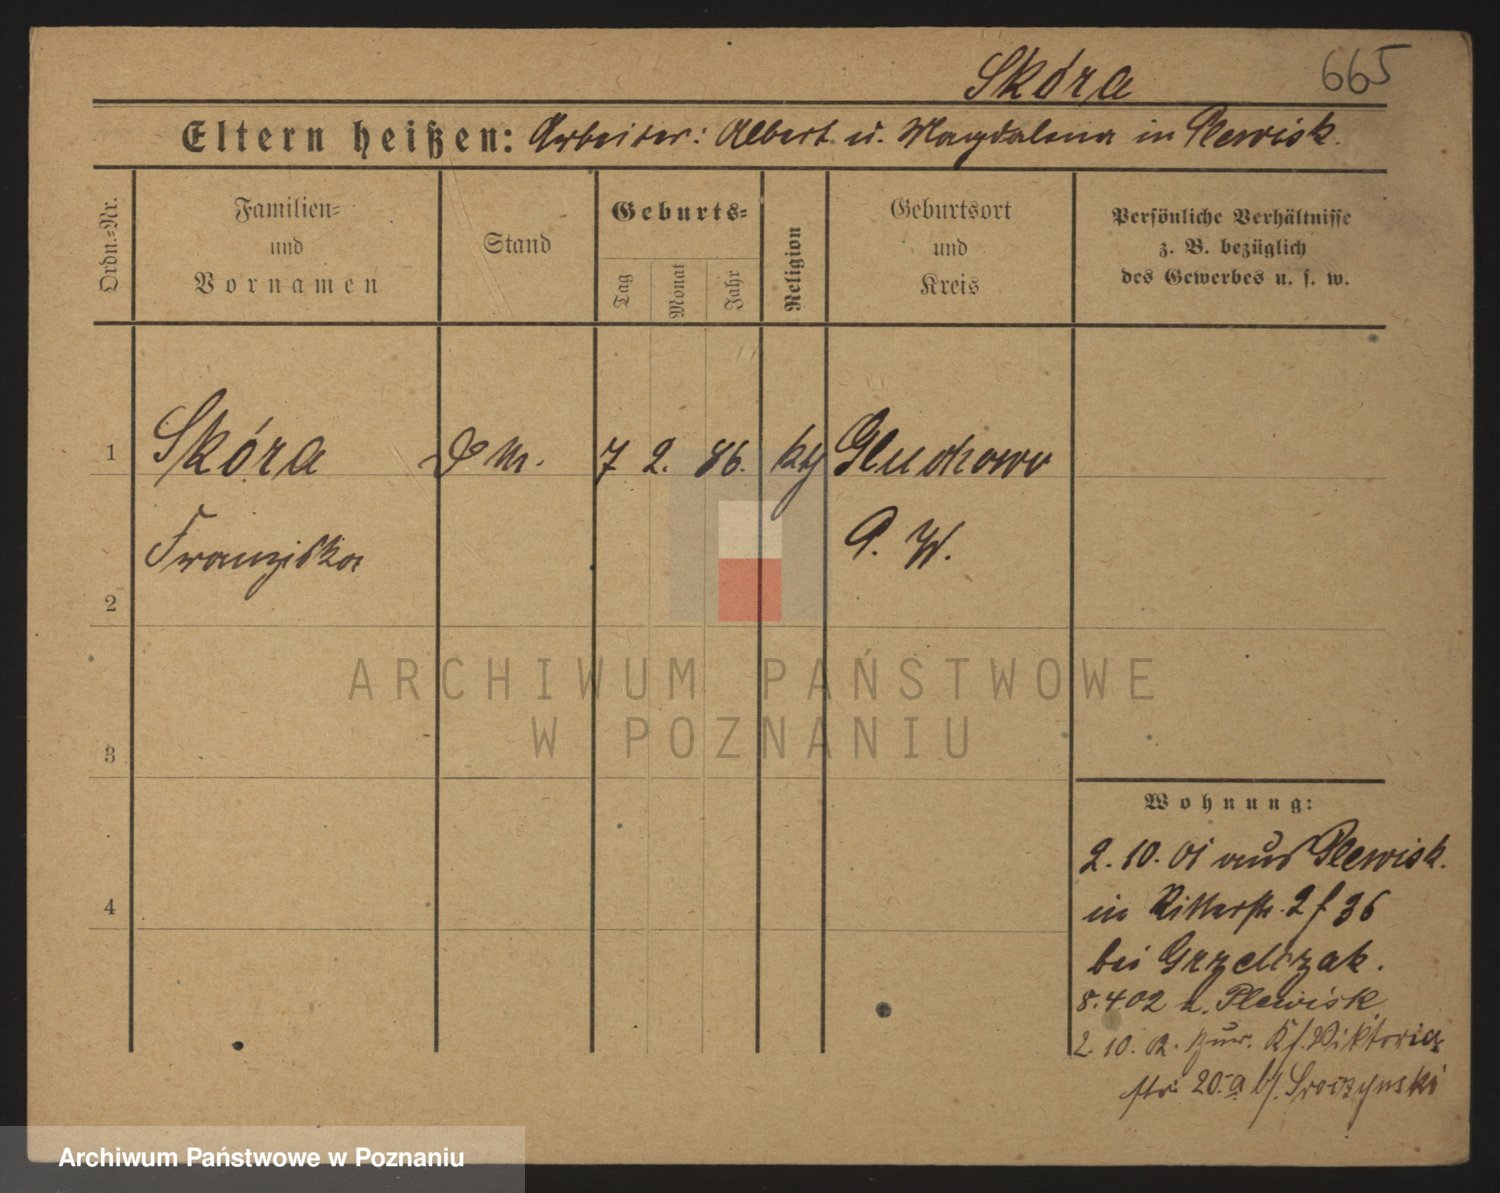 Skóra 665
Eltern heißen: Arbeiter: Albert u. Magdalena in Plewisk.
Ordn.=Nr.
Familien=
und
Vornamen
Stand
Geburts=
Tag
Monat
Jahr
Religion
Geburtsort
und
Kreis
Persönliche Verhältnisse
z. B. bezüglich
des Gewerbes u. s. w.
1 Skóra D M. 7 2. 86. kth Gluchowo
Franziska P. W.
2
ARCHIWUM PAŃSTWOWE
W POZNANIU
3
4
Wohnung:
2. 10. 01 aus Plewisk.
in Ritterstr. 2 f 36
bei Grzelczak.
8. 4 02 n. Plewisk
2. 10. 02. zur. Kf. Viktoria
str. 20.a b/. Sroczynski
Archiwum Państwowe w Poznaniu